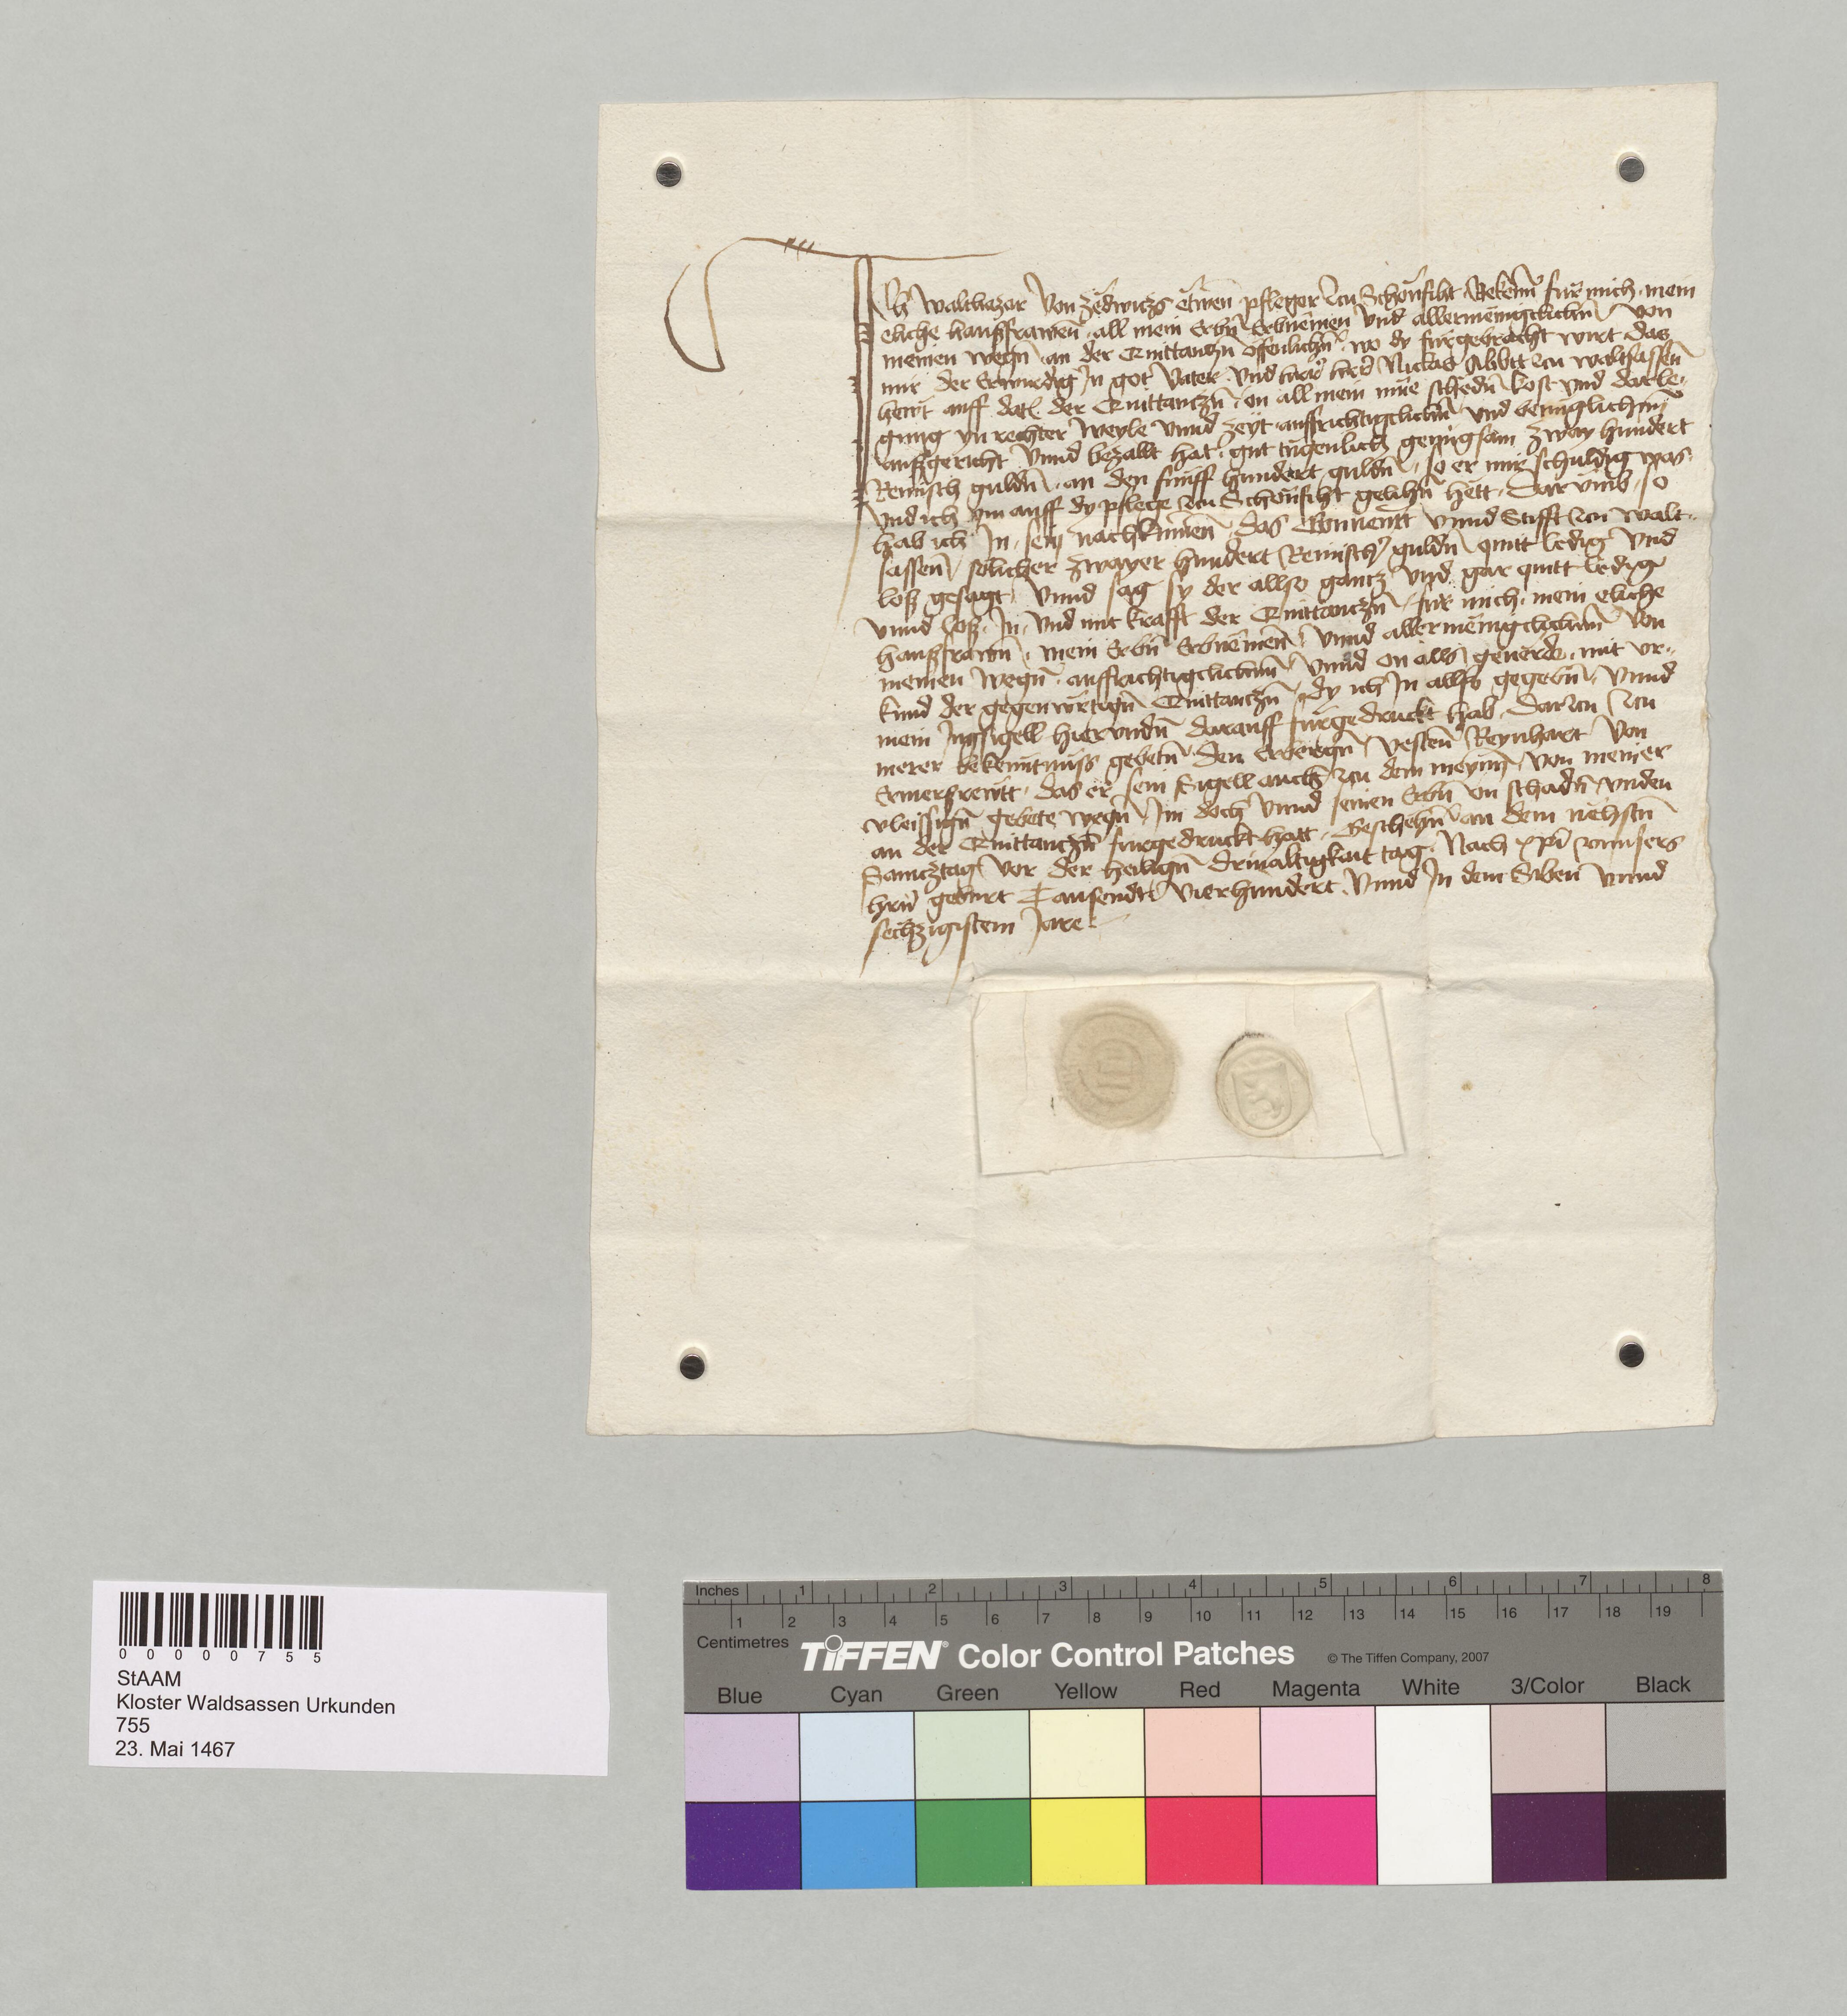 Ich Walthezar von Zedwiczs etwen pfleger zcu Schonficht Bekenn fur mich, mein
eliche haußfrawen, all mein Erbn Erbnemen vnd allermenigclichm von
meinen wegn, an der Quittanczn offenlichn, wo dy furgebracht wirt, das
mir der Erwirdig Jn got Vater vnd herr Nicklas Abbtt zcu waltsassen
hewt auff dat. der Quittanczn, on all mein mue schedn kost vnd darle,
gung yn rechter weyle vnnd zeyt auffrichtigclichn vnd benuglichn
außgericht vnnd bezallt hat, gut tugenlich genugsam zway hundert
Reinisch guldn, an den funff hundert guldn, so er mir schuldig was
vnd ich ym auff dy pflege zcu Schonficht gelihn hett, Dar vmb, so
hab ich Jn, sein nachkumen, das Conuentt vnnd Stifft zcu walt,,
sassen, solicher zwayer hundert Reinisch guldn quitt ledig vnd
loß gesagt, vnnd sag sy der allso gantz vnd gar quitt ledig
vnnd loß, Jn, vnd mit krafft der Quittanczn, fur mich, mein eliche
haußfrawn, mein Erbn Erbnemen, vnnd allermenigclichem von
meinen wegn, auffrichtigclichenn, vnnd on alls geuerde, mit vr,,
kund der gegenwertign Quittanczn, dy ich Jn allso gegebn, vnnd
mein Jnsigell hiervndn darauff furgedruckt hab, Dar zcu zcu
merer bekenntnuss gebetn den Erbergn vesten Reynhart von
Ermersrewtt, das er sein Sigell auch zcu dem meynn, von meiner
vleissign gebete wegn, Jm doch vnnd seinen Erbn on schadn, vnden
an der Quittanczn furgedruckt hatt, Geschehn an dem nehstn
Samcztag vor der heilign driualtigkait tag, Nach xpi vnnsers
hern geburt Tausendt vierhundert vnnd Jn dem Siben vnnd
sechzigistem Jare
00000755
StAAM
Kloster Waldsassen Urkunden
755
23. Mai 1467
Inches 1 2 3 4 5 6 7 8
1 2 3 4 5 6 7 8 9 10 11 12 13 14 15 16 17 18 19
Centimetres
TIFFEN® Color Control Patches © The Tiffen Company, 2007
Blue Cyan Green Yellow Red Magenta White 3/Color Black